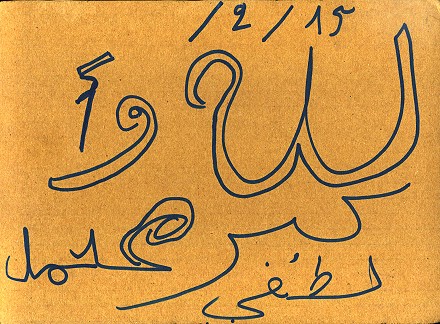 /2/15
لله وأ
كبر
محمد
لطفي